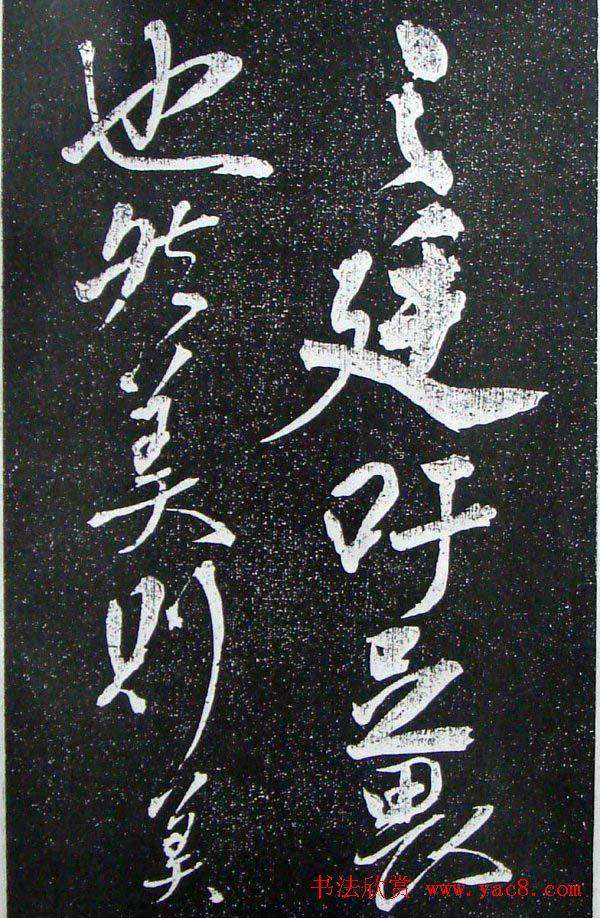 之廷吁足畏
也然美則美
书法欣赏 www.yac8.com